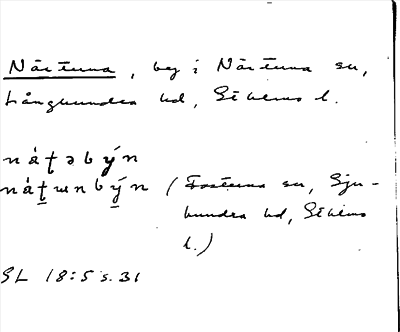 Närtuna, by i Närtuna sn,
Långhundra hd, Sthlms l.
náʈəbýn
náʈɯnbýn (Fasterna sn, Sju-
hundra hd, Sthlms
l.)
SL 18:5 s. 31